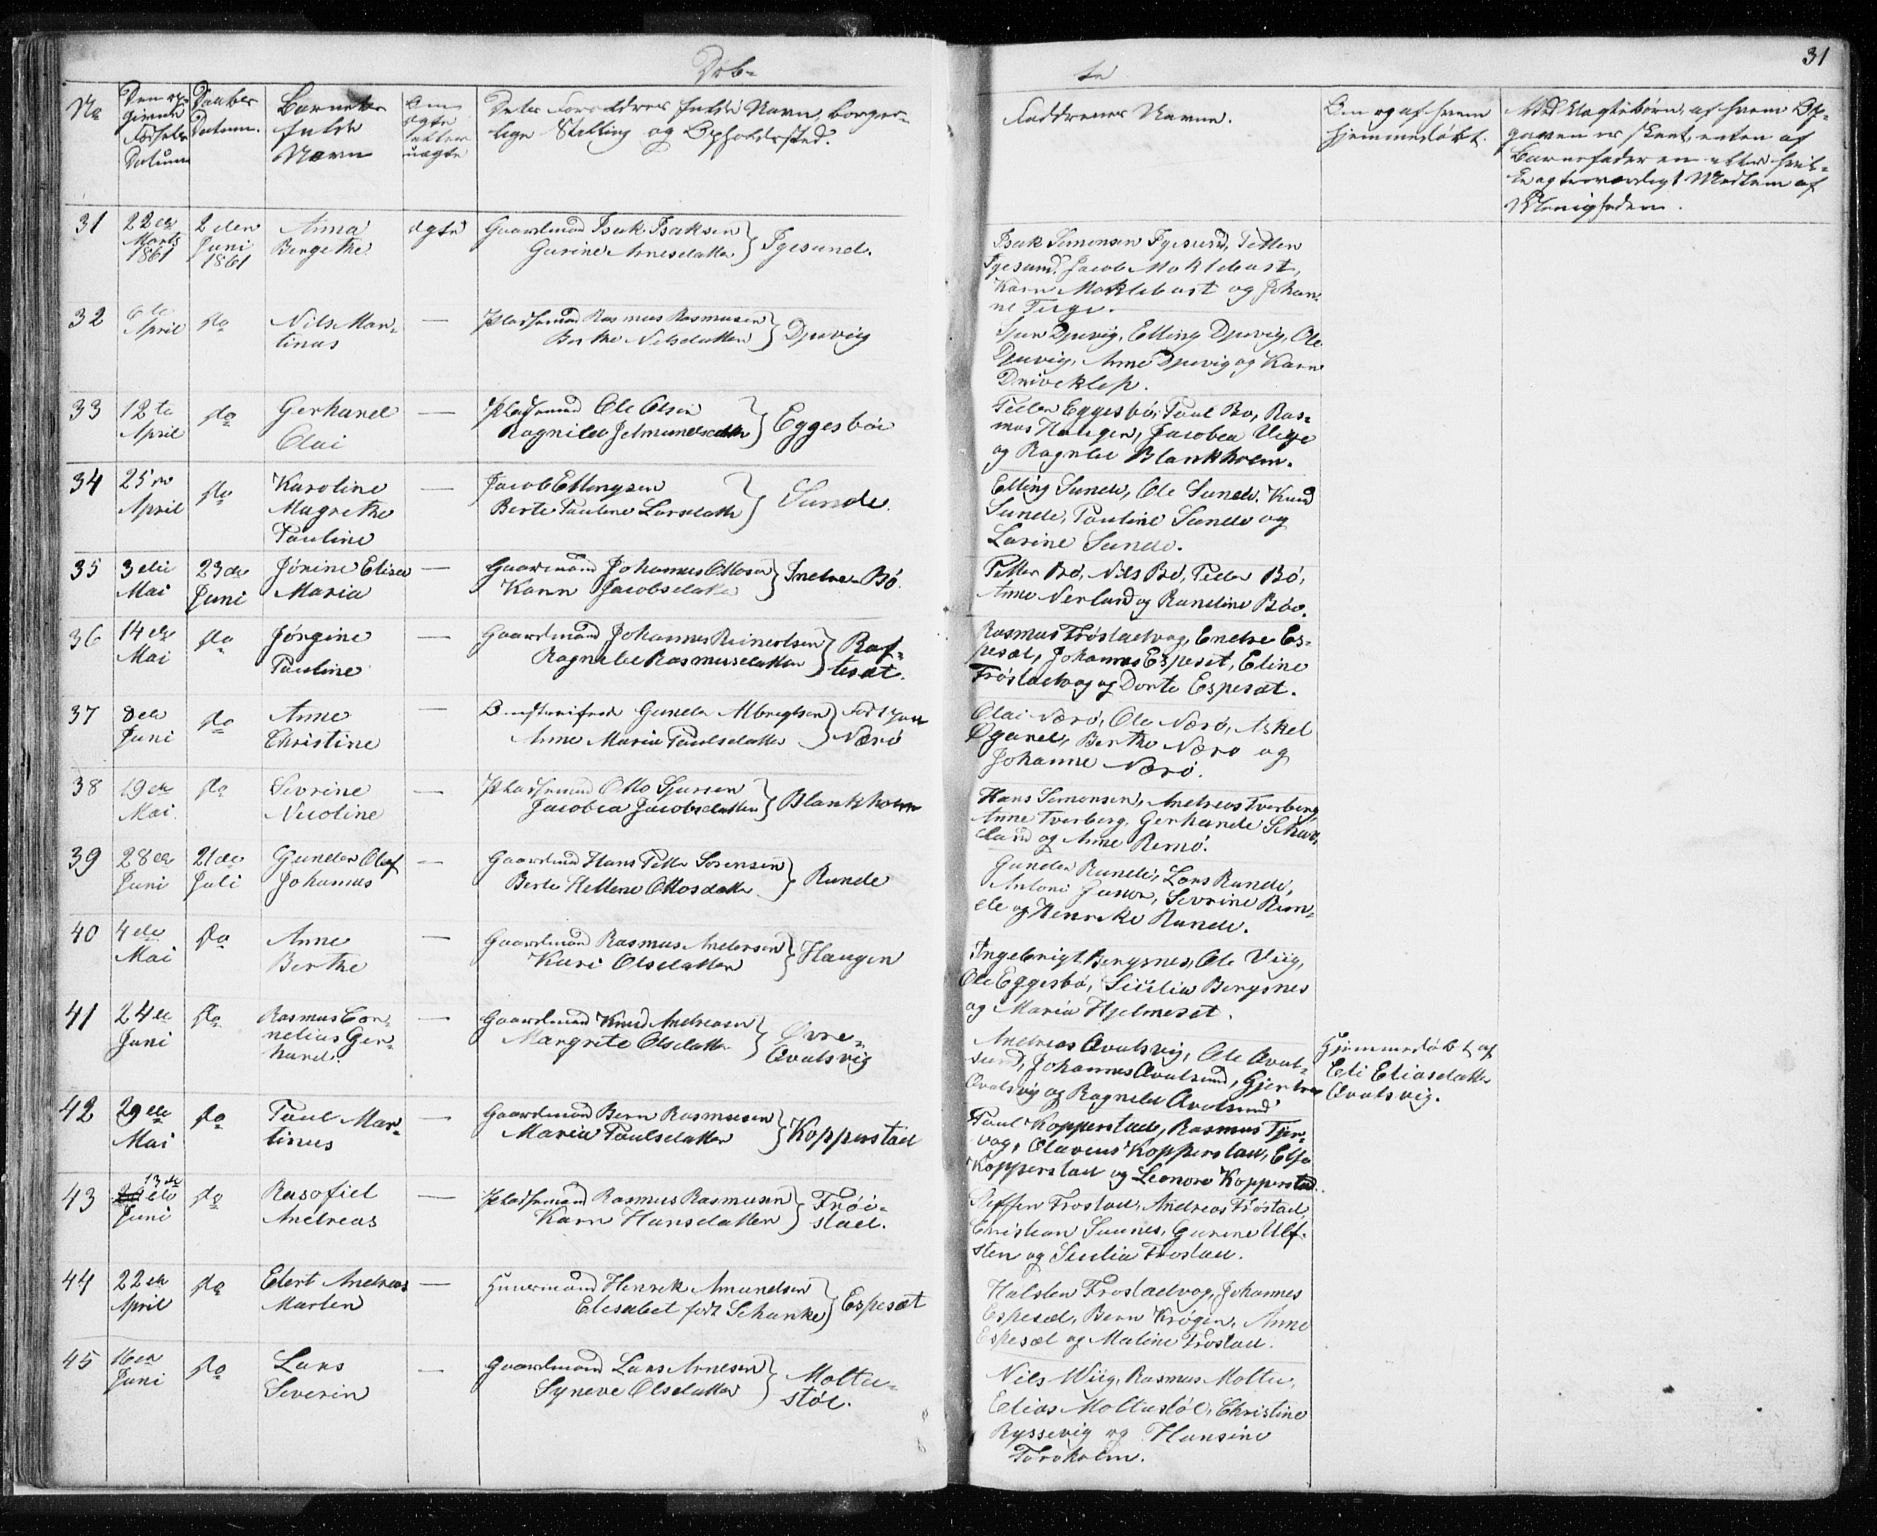 Døb-
te
31
No
Den op-
givne
Fødsels
Datum
Daabs
Datum.
Barnets
fulde
Navn
Om
ægte
eller
uægte
Dets Forældres fulde Navn, borger-
lige Stilling og Opholdssted.
Faddrenes Navne.
Om og af hvem
hjemmedøbt.
Ved Uægtebørn, af hvem Op-
gaven er skeet, enten af
Barnefader en eller hvil-
Menigheden.
31 22de Marts 1861 2den Juni 1861 Anna Bergithe ægte Gaardmand Isak Isaksen
Gurine Arnesdatter } Igesund.
Isak Simensen Igesund, Petter
Igesund, Jacob Moklebust,
Karn Moklebust og Johan-
ne Teige.
32 6te April do Nils Mar-
tinus — Pladsmand Rasmus Rasmusen
Berthe Nilsdatter } Djuvig
Sjur Djuvig, Elling Djuvig, Ole
Djuvig, Anne Djuvig og Karn
Driveklep.
33 12te April do Gerhard
Olai — Pladsmand Ole Olsen
Ragnile Jetmundsdatter } Eggesbøe
Peder Eggesbø, Paul Bø, Ras-
mus Haugen, Jacobea Viige
og Ragnele Blankholm.
34 25de April do Karoline
Magrethe
Pauline — Jacob Ellingsen
Berte Pauline Larsdatter } Sunde.
Elling Sunde, Ole Sunde, Knud
Sunde, Pauline Sunde og
Larine Sunde.
35 3die Mai 23de Juni Jørine Elisa
Maria — Gaardmand Johannes Ottosen
Karn Jacobsdatter } Indre-Bø
Petter Bø, Nils Bø, Peder Bø,
Anne Nerland og Randine Bøe.
36 14de Mai do Jørgine
Pauline — Gaardmand Johannes Reinertsen
Ragnele Rasmusdatter } Raf-
tesæt.
Rasmus Frøstadvog, Endre Es-
pesæt, Johannes Espeset, Eline
Frøstadvog og Dorte Espesæt.
37 8de Juni do Anne
Christine — Gunder Albregtsen
Anne Maria Paulsdatter } Nærø
Olai Nærø, Ole Nærø, Askel
Øgard, Berthe Nærø og
Johanne Nærø.
38 19de Mai. do Sivrine
Nicoline — Pladsmand Otto Sjursen
Jacobea Jacobsdatter } Blankholm
Hans Simonsen, Andreas Tverberg
Anne Tverberg, Gerharde Schar-
land og Anne Remø.
39 28de Juni 21de Juli Gunder Olaf
Johannes — Gaardmand Hans Petter Sørensen
Berte Hellene Ottosdatter } Runde
Gunder Runde, Lars Runde,
Antoni Runde, Sivrine Run-
de og Henrike Runde.
40 4de Mai do Anne
Berthe — Gaardmand Rasmus Andersen
Kari Olsdatter } Haugen
Ingebrigt Bergsnes, Ole Viig,
Ole Eggesbø, Sicilia Bergsnes
og Maria Hjelmeset.
41 24de Juni do Rasmus Cor-
nelius Ger-
hard — Gaardmand Knud Andreasen
Margrete Olsdatter } Øvre-
Qvalsvig
Andreas Qvalsvig, Ole Qval-
sund, Johannes Qvalsund, Gjertrue
Qvalsvig og Ragnele Qvalsund
Hjemmedøbt af
Eli Eliasdatter
Qvalsvig.
42 29de Mai do Paul Mar-
tinus — Gaardmand Bern Rasmusen
Maria Paulsdatter } Kopperstad
Paul Kopperstad, Rasmus Tjør-
vog, Olavius Kopperstad, Else
Kopperstad og Leonore Kopperstad.
43 13de Juni do Rasofiel
Andreas — Pladsmand Rasmus Rasmusen
Karn Hansdatter } Frøi-
stad.
Steffen Frostad, Andreas Frøstad,
Christian Sunnes, Gurine Ulf-
sten og Sicilia Frostad.
44 22de April do Elert Andreas
Marten — Huusmand Henrik Amundsen
Elisabet født Schanke } Espesæt
Halsten Frostadvog, Johannes
Espesæt, Bern Krøgen, Anne
Espesæt og Maline Frostad.
45 16de Juni do Lars
Severin — Gaardmand Lars Arnesen
Syneve Olsdatter } Moltu-
støl.
Nils Wiig, Rasmus Moltu,
Elias Moltustøl, Christine
Ryssevig og Hansine
Torsholm.